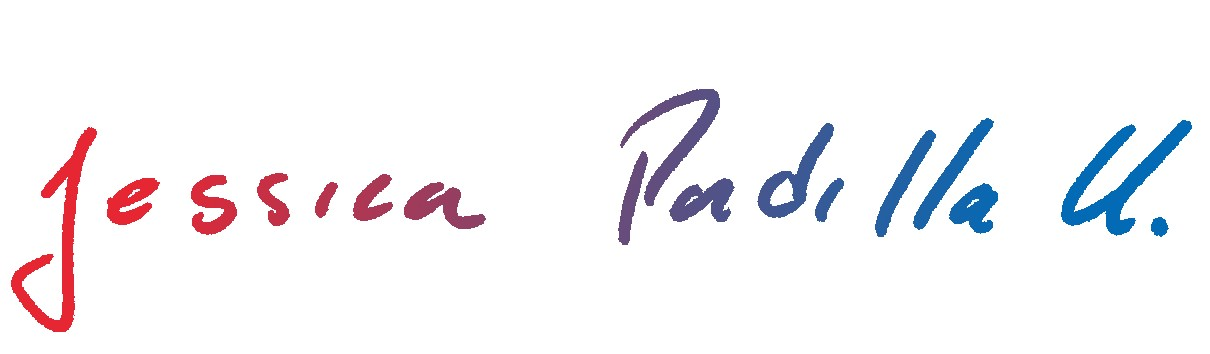 Jessica Padilla U.